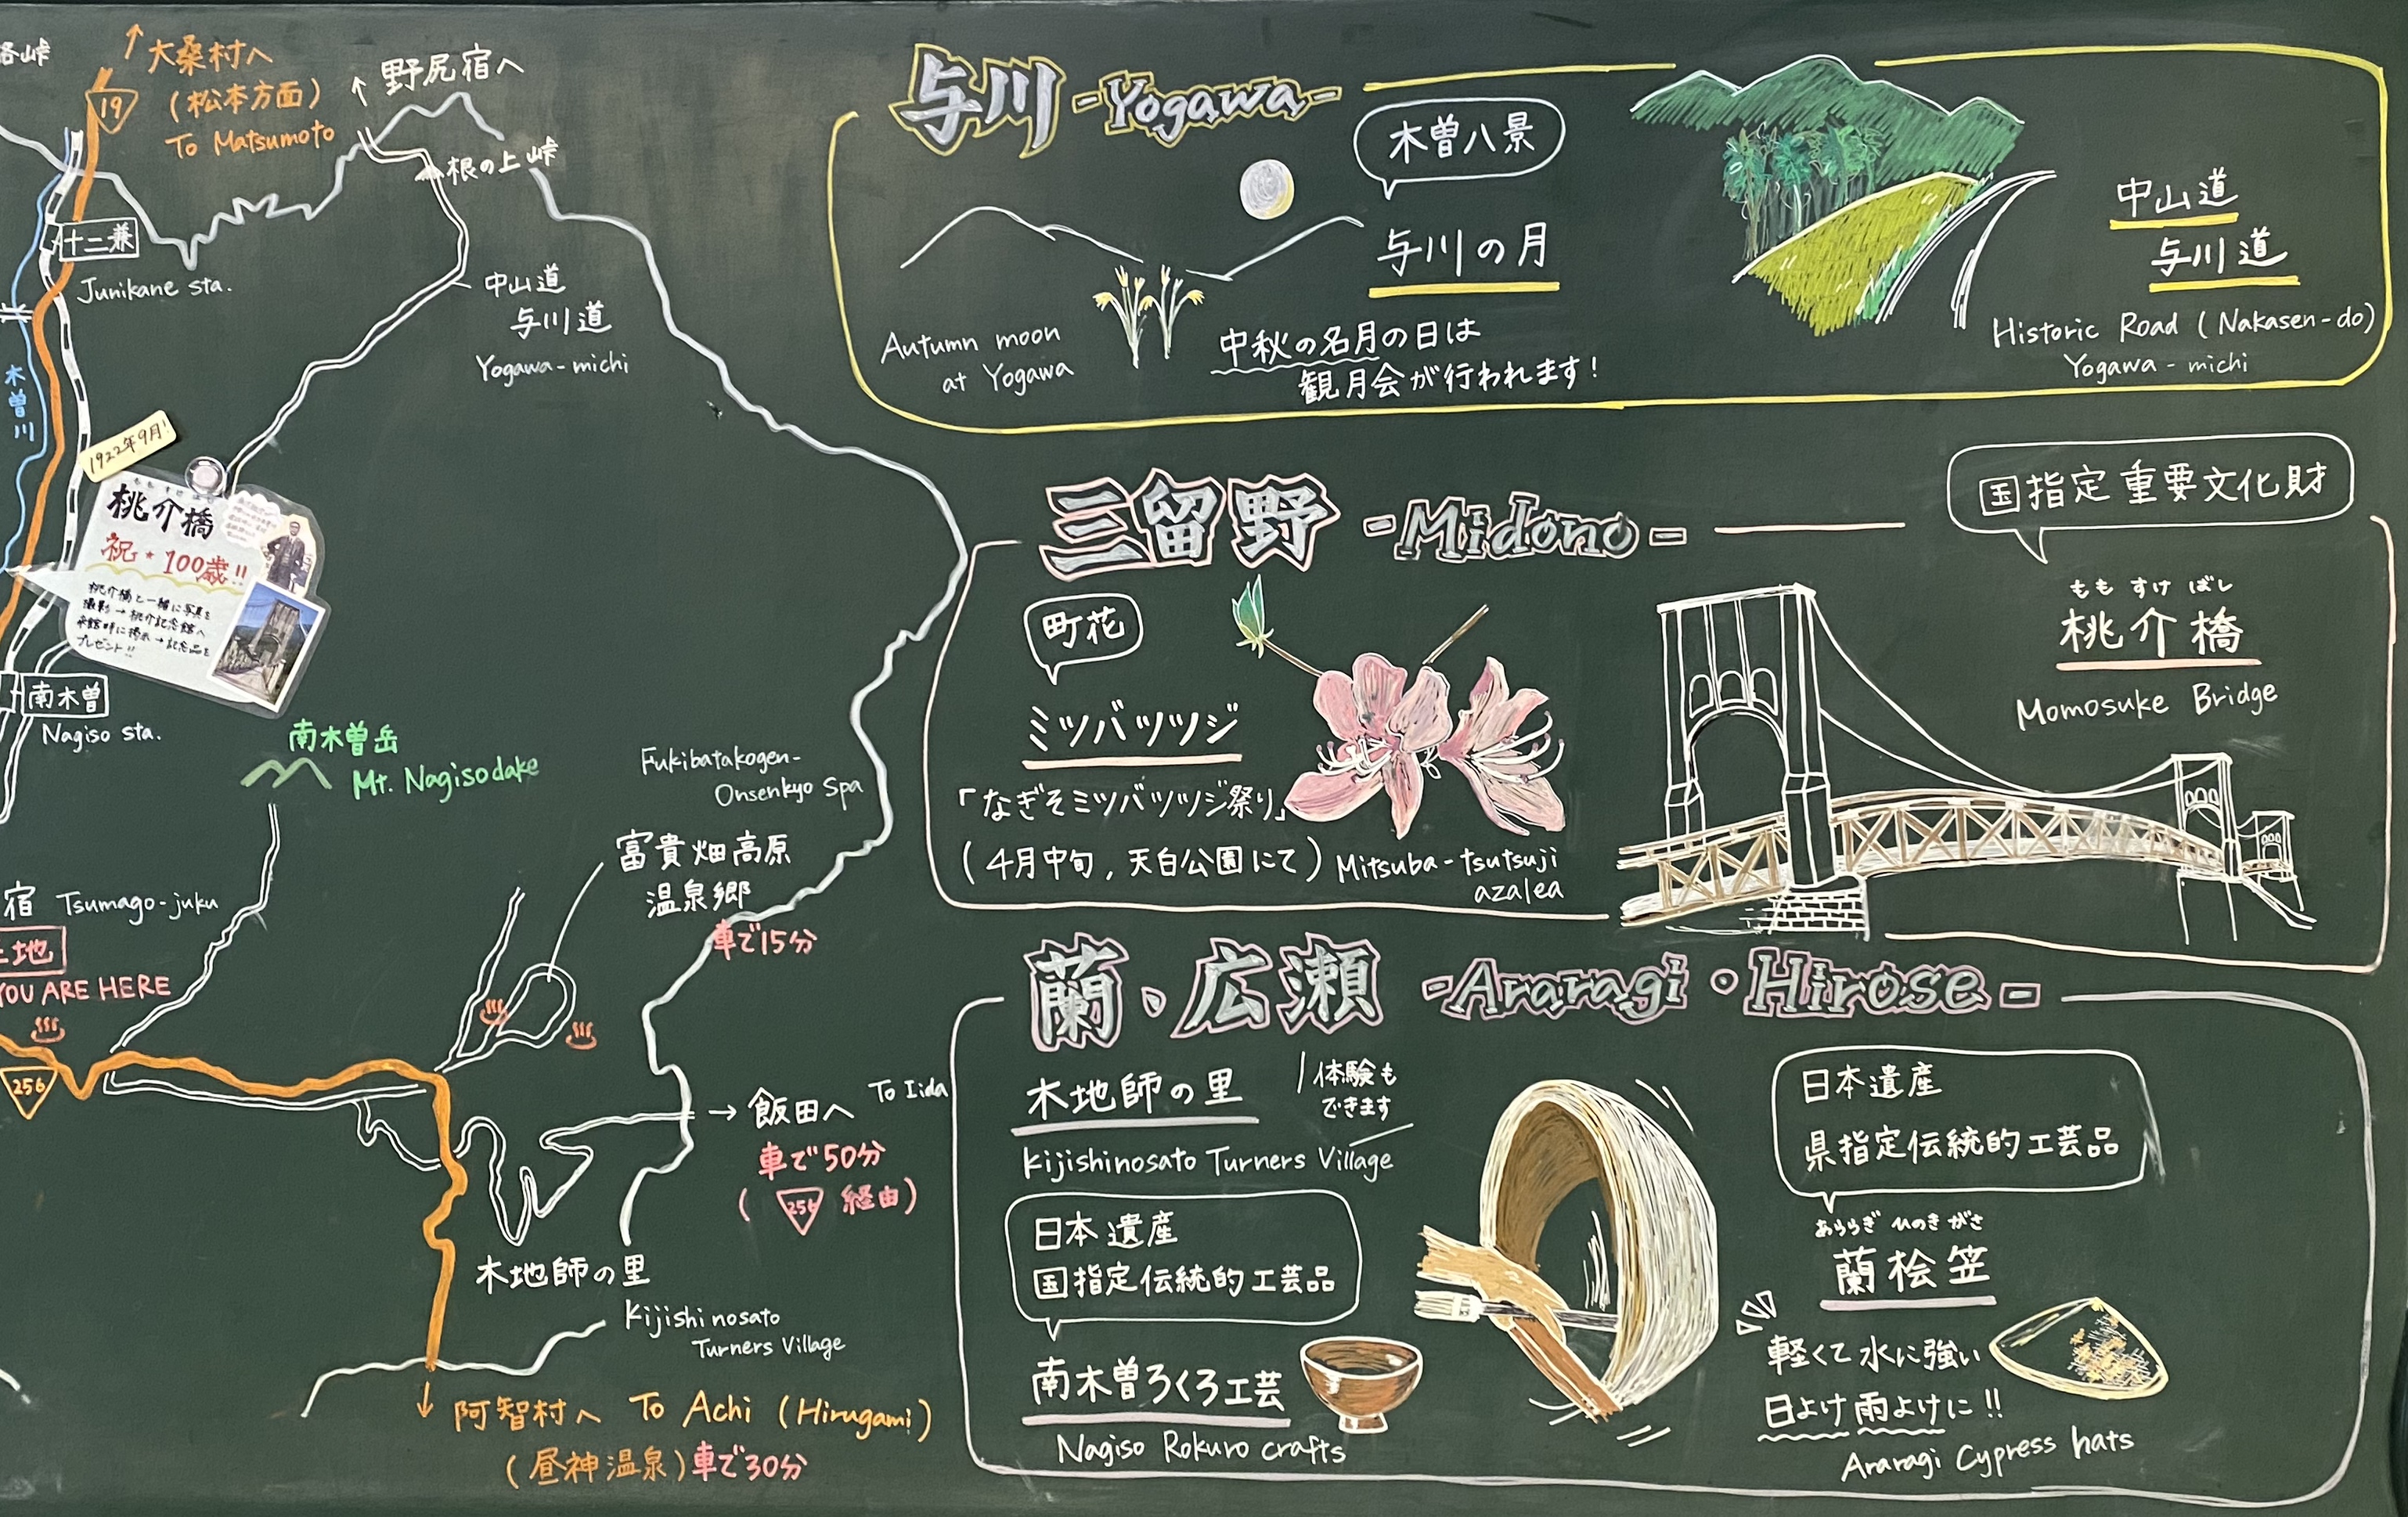 峠
↑大桑村へ
(松本方面)
To Matsumoto
19
↑野尻宿へ
根の上峠
十二兼
Junikane sta.
中山道
与川道
Yogawa-michi
木曽川
1922年9月!
ももすけばし
桃介橋
祝★100歳!!
桃介橋と一緒に写真を
撮影→桃介記念館へ
来館時に掲示→記念品を
プレゼント!!
南木曽
Nagiso sta.
南木曽岳
Mt. Nagisodake
Fukibatakogen-
Onsenkyo Spa
富貴畑高原
温泉郷
車で15分
宿 Tsumago-juku
地
YOU ARE HERE
256
→飯田へ To Iida
車で50分
(256経由)
木地師の里
Kijishinosato
Turners Village
↓阿智村へ To Achi (Hirugami)
(昼神温泉)車で30分
与川 -Yogawa-
木曽八景
与川の月
Autumn moon
at Yogawa
中秋の名月の日は
観月会が行われます!
中山道
与川道
Historic Road (Nakasen-do)
Yogawa-michi
三留野 -Midono-
町花
ミツバツツジ
「なぎそミツバツツジ祭り」
(4月中旬,天白公園にて)
Mitsuba-tsutsuji
azalea
国指定重要文化財
ももすけばし
桃介橋
Momosuke Bridge
蘭・広瀬 -Araragi・Hirose-
木地師の里
体験も
できます
Kijishinosato Turners Village
日本遺産
国指定伝統的工芸品
南木曽ろくろ工芸
Nagiso Rokuro crafts
日本遺産
県指定伝統的工芸品
あららぎ ひのき がさ
蘭桧笠
軽くて水に強い
日よけ雨よけに!!
Araragi Cypress hats